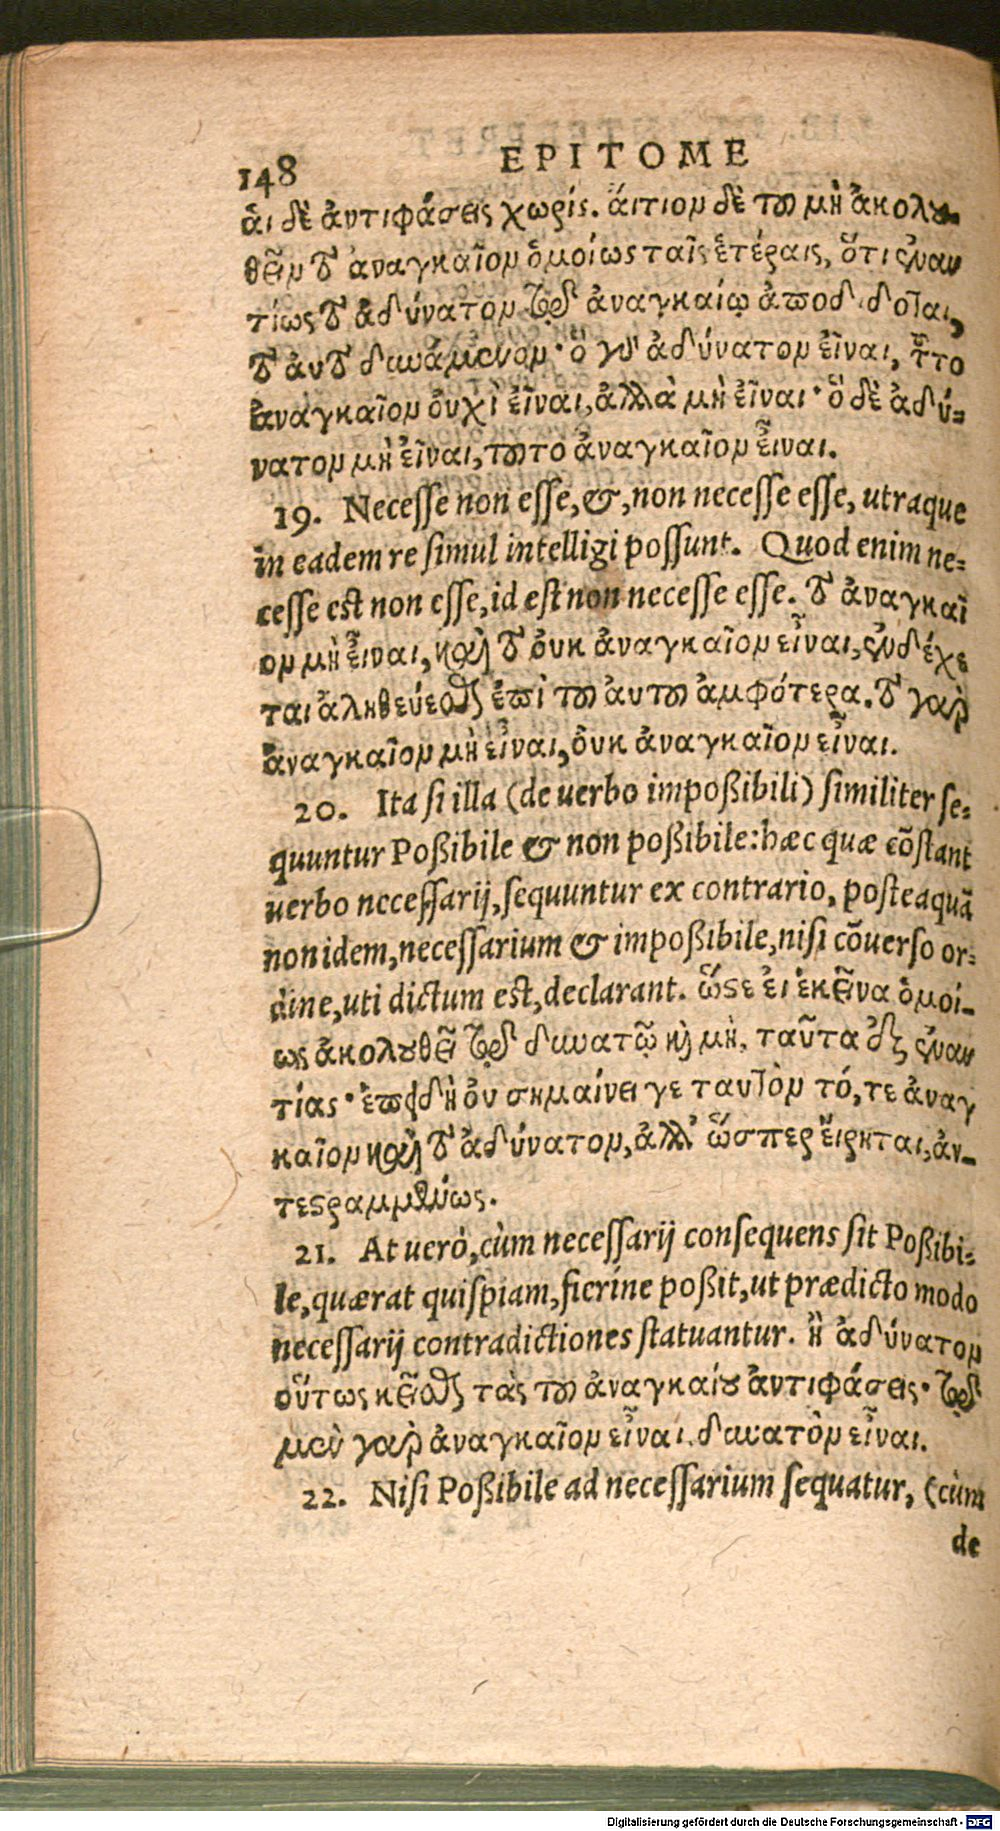 148 EPITOME
ἁι δὲ ἀντιφάσεις χωρίς. ἄιτιον δὲ τοῦ μὴ ἀκολου-
θεῖν τὸ ἀναγκαῖον ὁμοίως ταῖς ἑτέραις, ὅτι ἐναν
τίως τὸ ἀδύνατον τῷ ἀναγκαίῳ ἀποδίδοται,
τὸ ἀυτὸ δυνάμενον· ὃ γὰρ ἀδύνατον εἶναι, τοῦτο
ἀναγκαῖον ὀυχὶ εἶναι, ἀλλὰ μὴ εἶναι· ὃ δὲ ἀδύ-
νατον μὴ εἶναι, τοῦτο ἀναγκαῖον εἶναι.
19. Necesse non esse, &, non necesse esse, utraque
in eadem re simul intelligi possunt. Quod enim ne-
cesse est non esse, id est non necesse esse. τὸ ἀναγκαῖ
ον μὴ εἶναι, καὶ τὸ ὀυκ ἀναγκαῖον εἶναι, ἐνδέχε
ται ἀληθεύεσθαι ἐπὶ τοῦ ἀυτοῦ ἀμφότερα. τὸ γὰρ
ἀναγκαῖον μὴ εἶναι, ὀυκ ἀναγκαῖον εἶναι.
20. Ita si illa (de uerbo impoßibili) similiter se-
quuntur Poßibile & non poßibile: hæc quæ cōstant
uerbo necessarij, sequuntur ex contrario, posteaquã
non idem, necessarium & impoßibile, nisi cōuerso or-
dine, uti dictum est, declarant. ὥστε ἐι ἐκεῖνα ὁμοί-
ως ἀκολουθεῖ τῷ δυνατῷ καὶ μὴ, ταῦτα ἐξ ἐναν
τίας· ἐπειδὴ ὀυ σημαίνει γε ταυτὸν τό, τε ἀναγ
καῖον καὶ τὸ ἀδύνατον, ἀλλ' ὥσπερ ἔιρηται, ἀν-
τεστραμμένως.
21. At uerò, cùm necessarij consequens sit Poßibi-
le, quærat quispiam, fierine poßit, ut prædicto modo
necessarij contradictiones statuantur. ἢ ἀδύνατον
οὕτως κεῖσθαι τὰς τοῦ ἀναγκαίου ἀντιφάσεις· τῷ
μὲν γὰρ ἀναγκαῖον εἶναι, δυνατὸν εἶναι.
22. Nisi Poßibile ad necessarium sequatur, (cùm
de
Digitalisierung gefördert durch die Deutsche Forschungsgemeinschaft - DFG